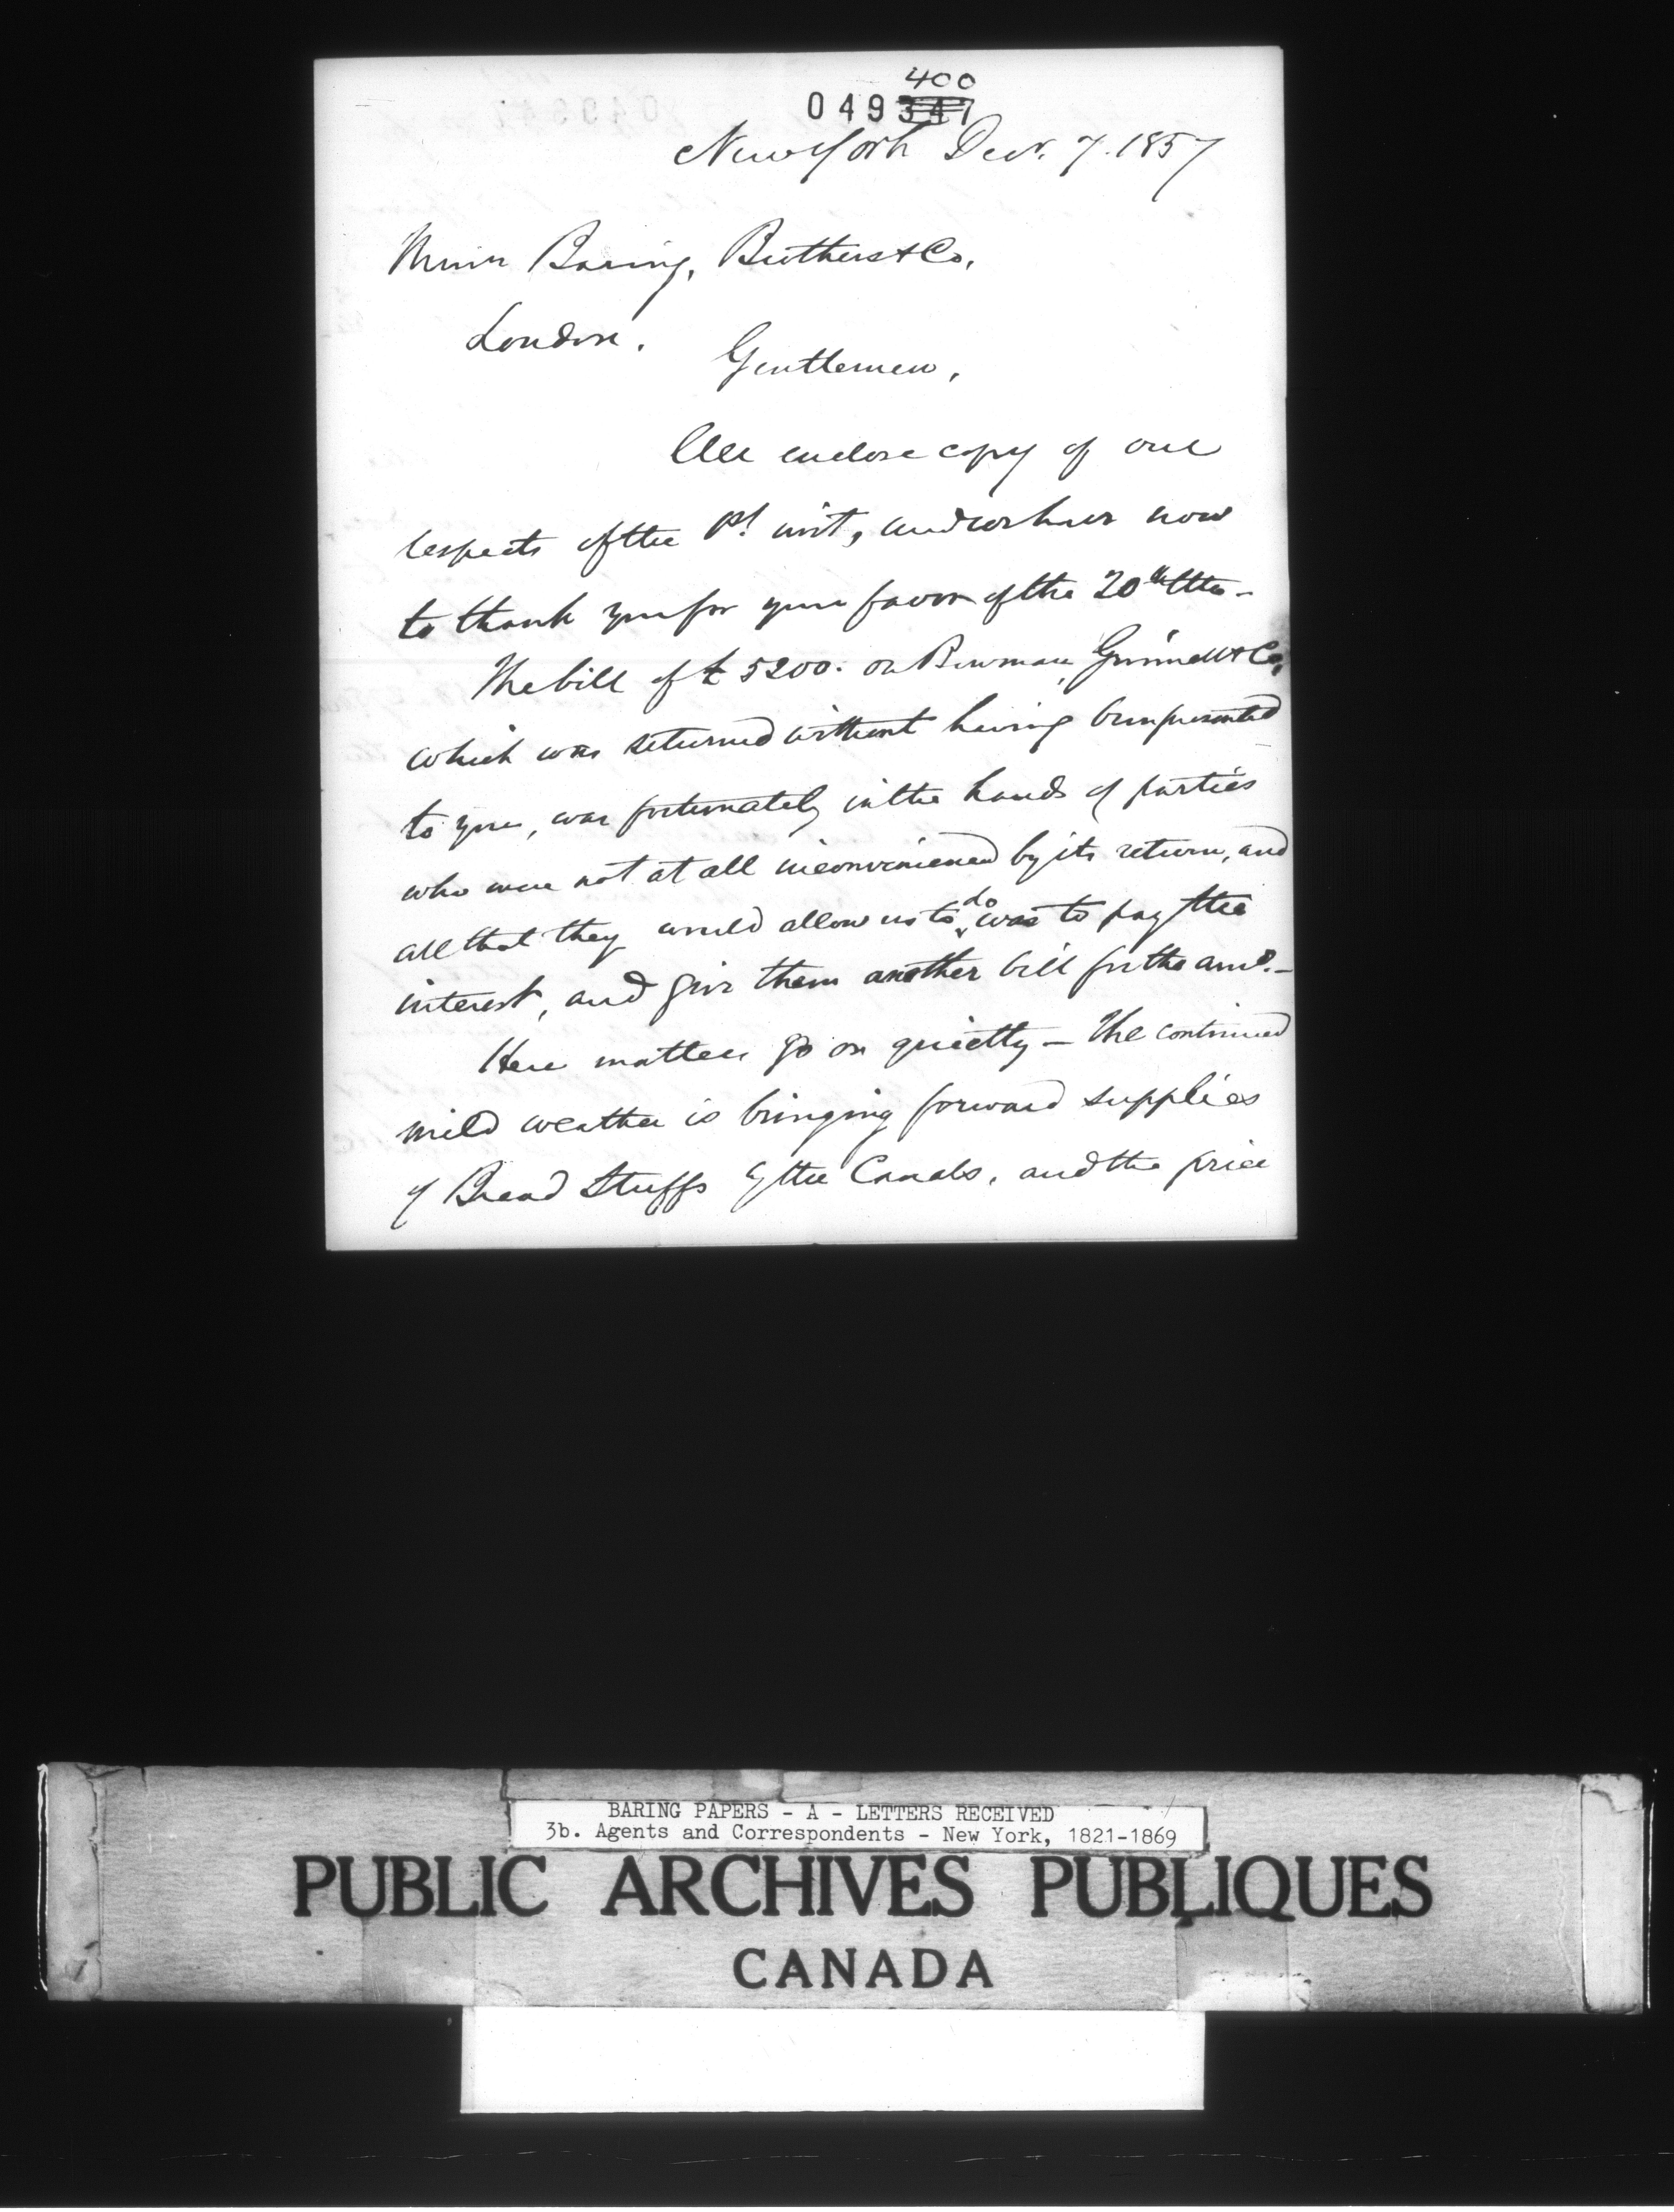 400
049347
New York Decr. 7. 1857
Messrs Baring, Brothers & Co.
London.
Gentlemen,
We enclose copy of our
respects of the 1st. inst, and we have now
to thank you for your favor of the 20th Ulto -
The bill of £5200. on Bowman, Grinnell & Co,
which was returned without having been presented
to you, was fortunately in the hands of parties
who were not at all inconvenienced by its return, and
all that they would allow us to do was to pay the
interest, and give them another bill for the amt. -
Here matters go on quietly - The continued
mild weather is bringing forward supplies
of Bread Stuffs by the Canals, and the price
BARING PAPERS - A - LETTERS RECEIVED
3b. Agents and Correspondents - New York, 1821-1869
PUBLIC ARCHIVES PUBLIQUES
CANADA